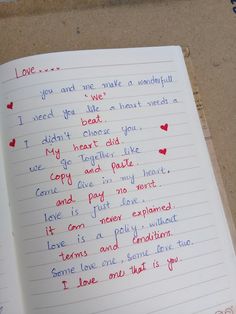 Love....
you and me make a wonderfull
"we"
I need you like a heart needs a
beat.
I didn't choose you,
My heart did.
we go together like
Copy and Paste.
Come live in my heart,
and pay no rent.
love is just love,
it can never explained.
love is a policy, without
terms and conditions.
Some love one, Some love two.
I love one that is you.